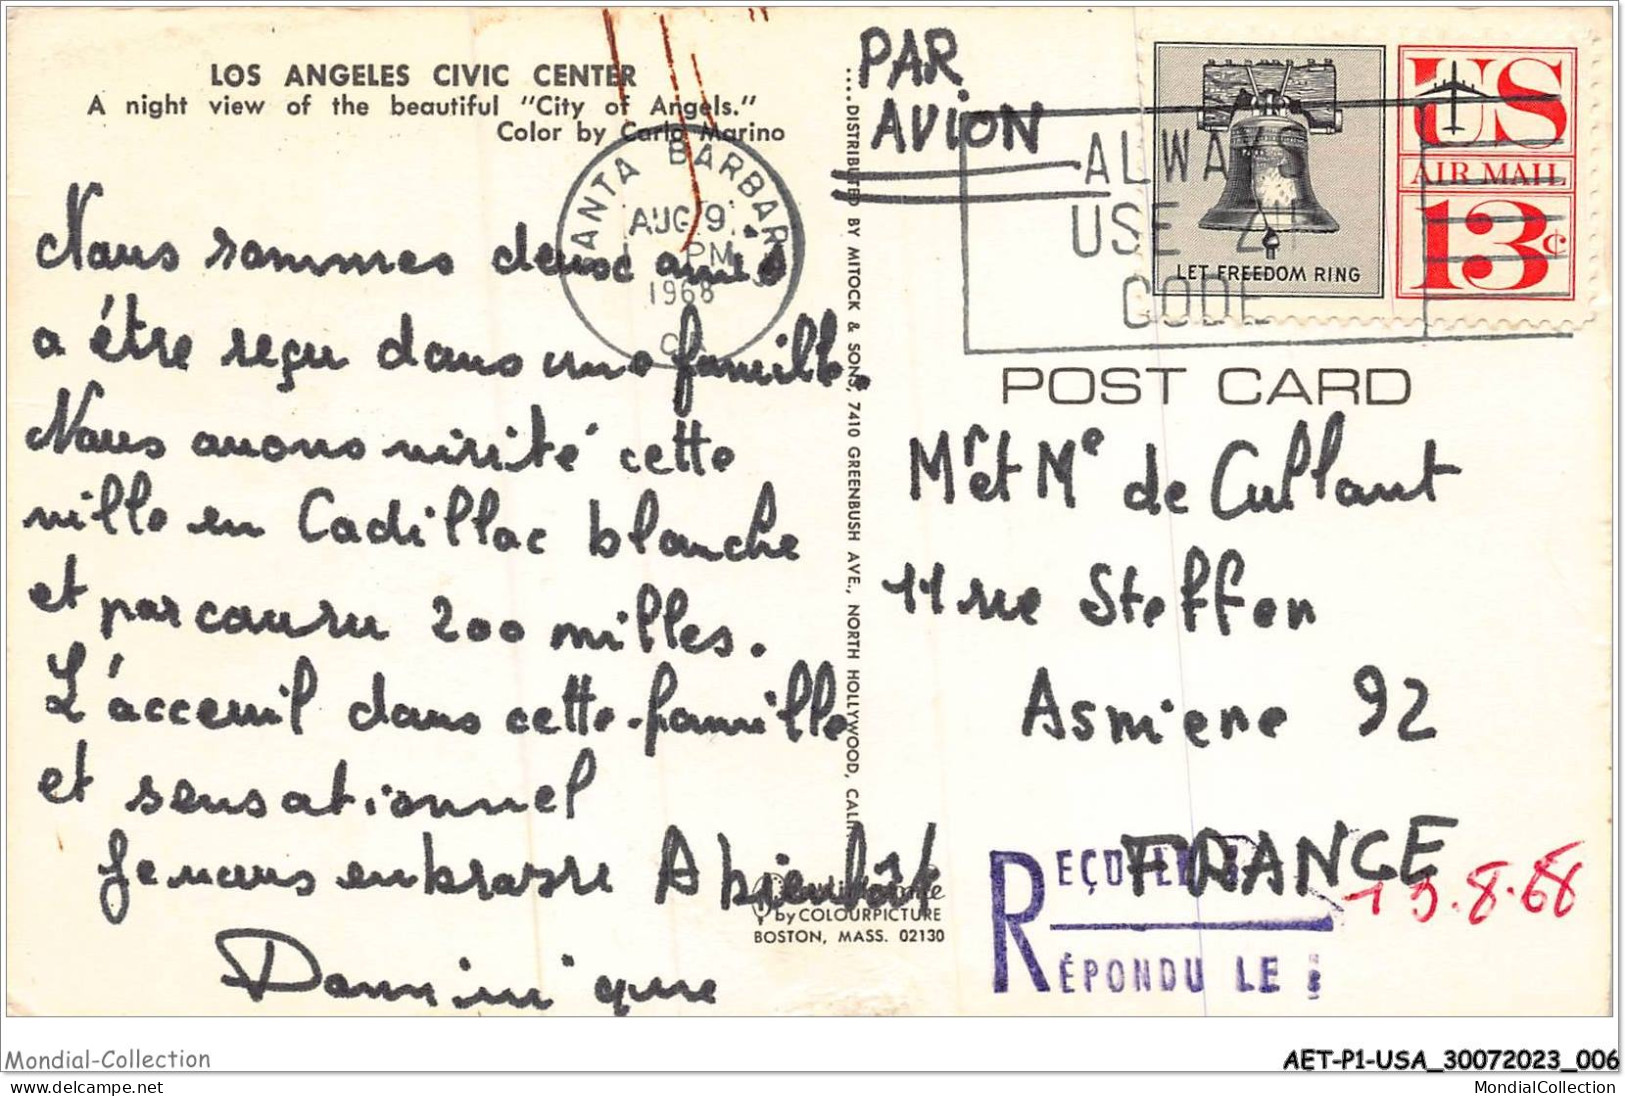 LOS ANGELES CIVIC CENTER
A night view of the beautiful "City of Angels."
Color by Carlo Marino
Nous sommes deux amis
a être reçu dans une famille.
Nous avons visité cette
ville en Cadillac blanche
et parcouru 200 milles.
L'acceuil dans cette famille
et sensationnel
Je vous embrasse A bientôt
Dominique
SANTA BARBARA
AUG 9
PM
1968
....DISTRIBUTED BY MITOCK & SONS, 7410 GREENBUSH AVE., NORTH HOLLYWOOD, CALIF.
by COLOURPICTURE
BOSTON, MASS. 02130
PAR
AVION
ALWAYS
USE ZIP
CODE
LET FREEDOM RING
US
AIR MAIL
13¢
POST CARD
Mr et Me de Cullant
11 rue Steffen
Asniere 92
FRANCE
REÇU LE
13.8.68
RÉPONDU LE :
Mondial-Collection
AET-P1-USA_30072023_006
www.delcampe.net
MondialCollection